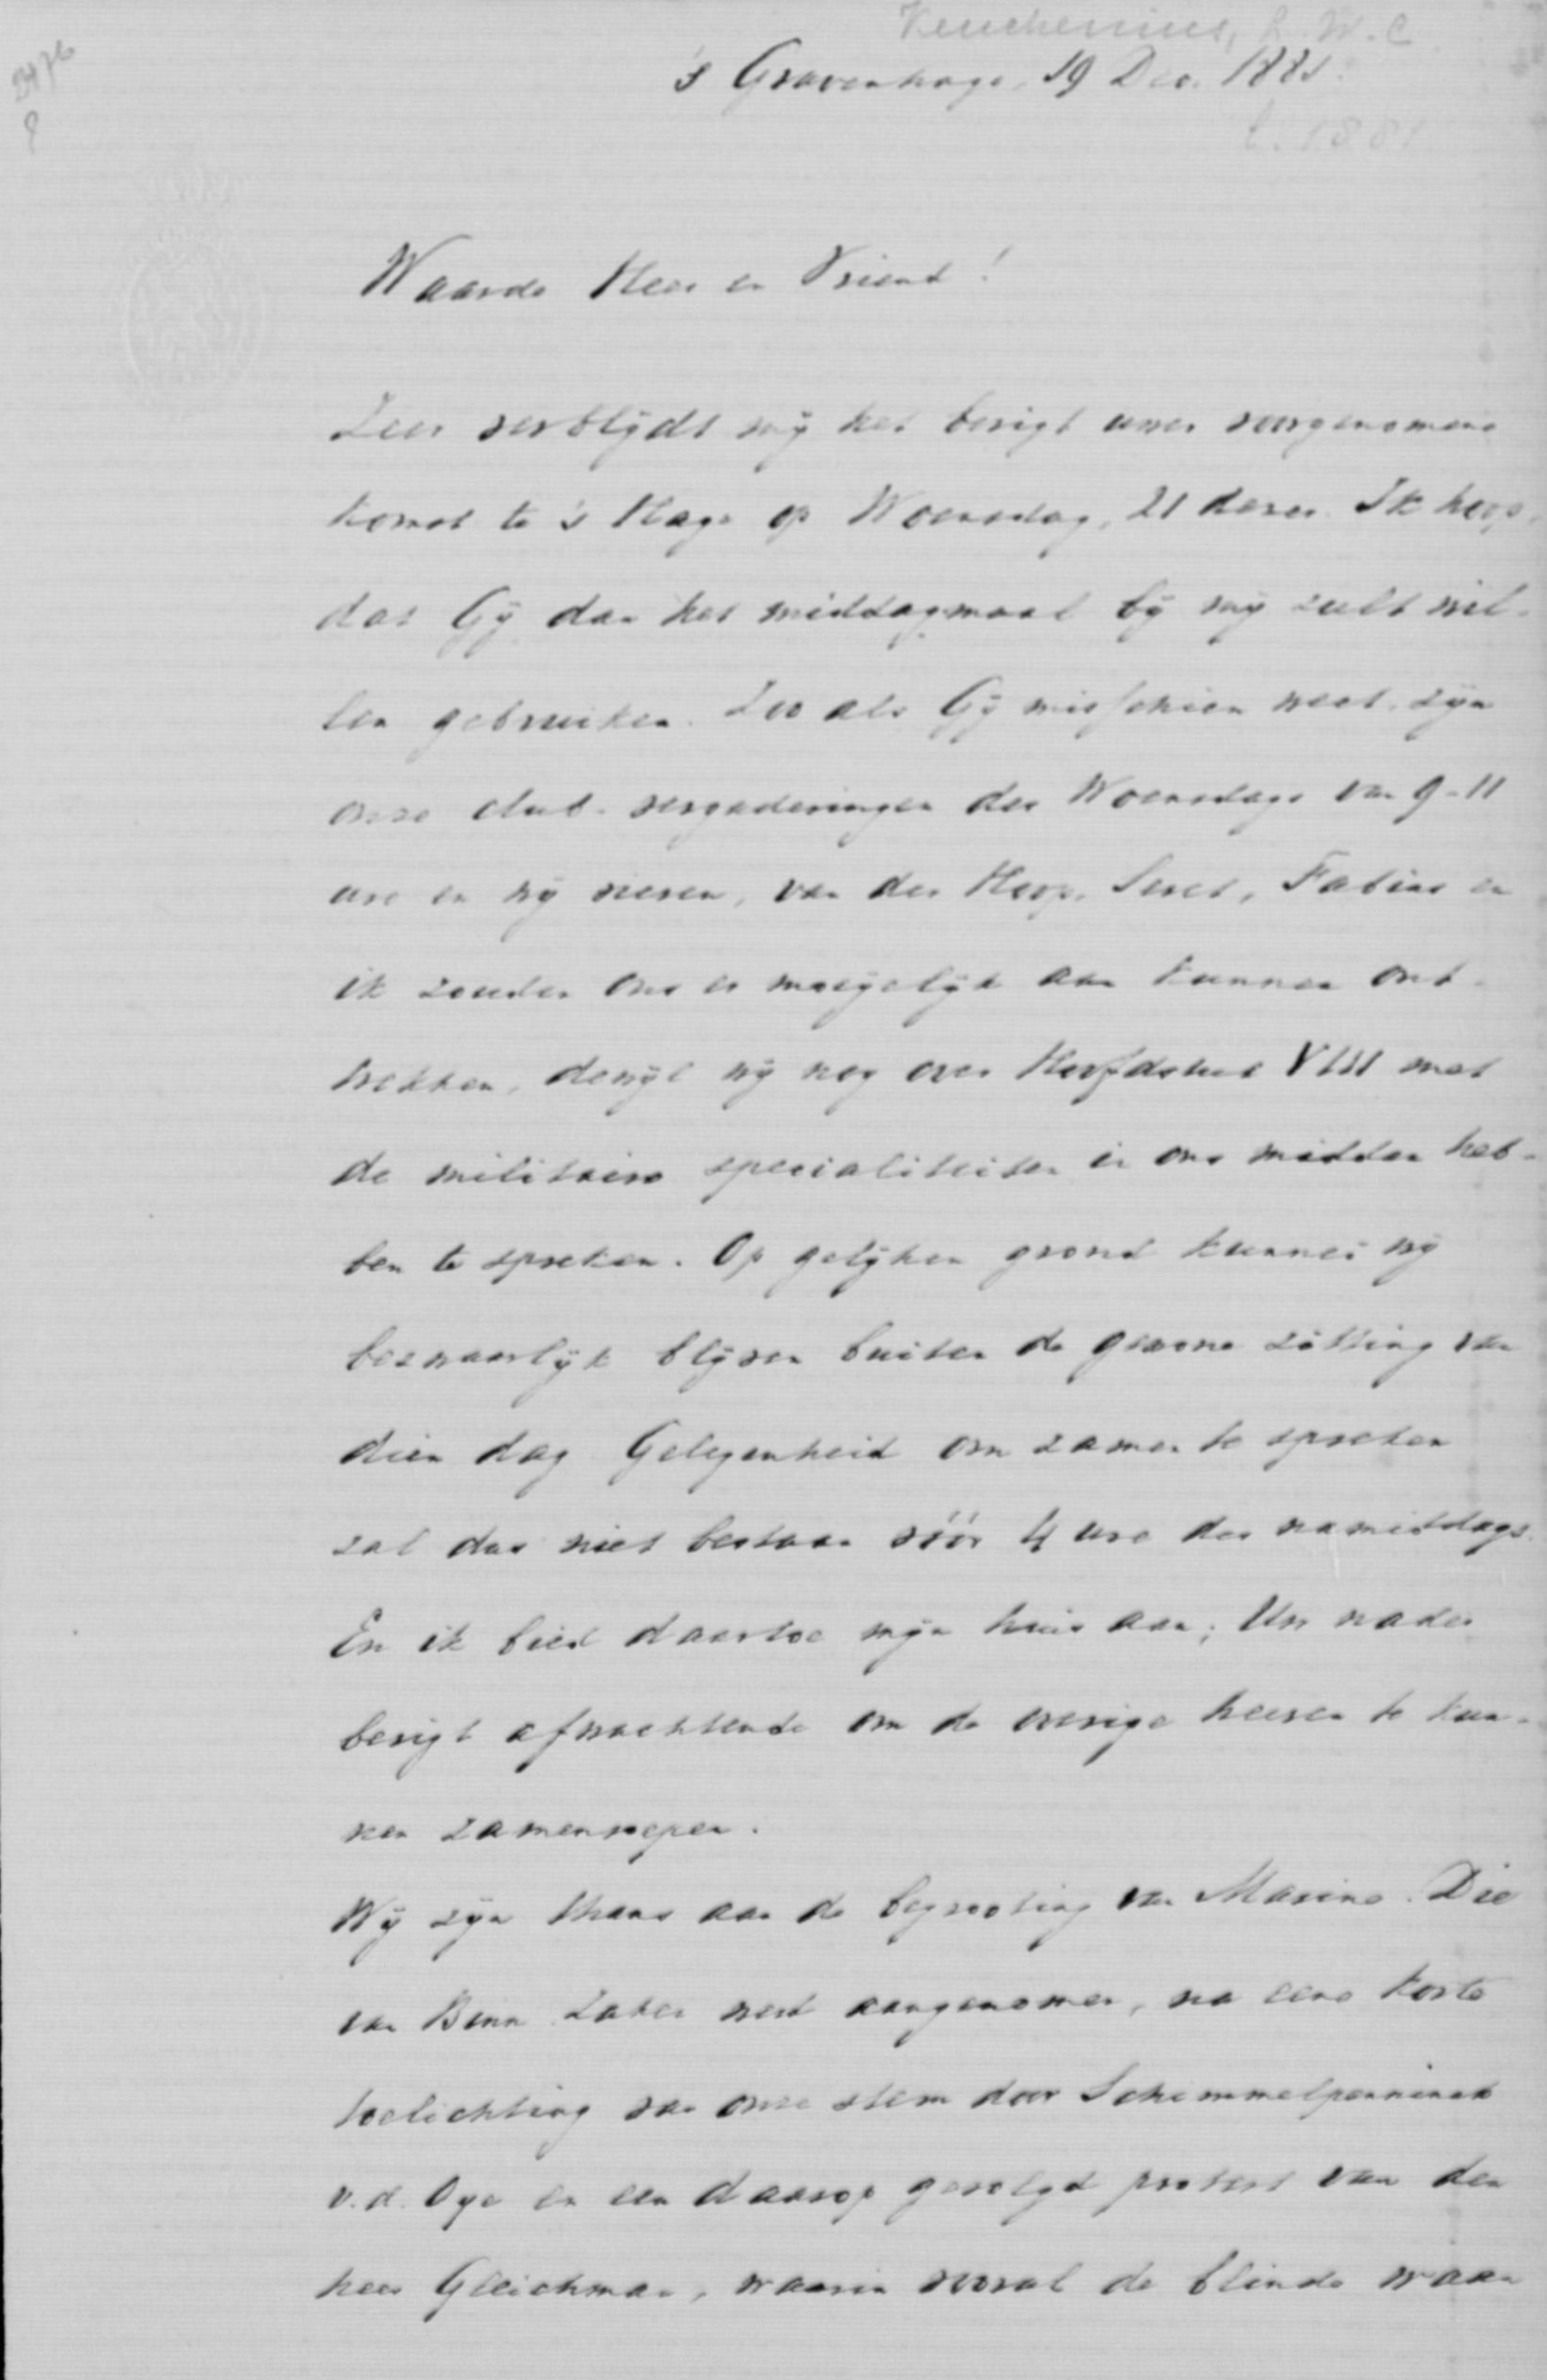 Keuchenius, L.W.C
's Gravenhage, 19 Dec. 1881.
b. 1881
Waarde Heer en Vriend!
Zeer verblijdt mij het berigt uwer voorgenomene
komst te 's Hage op Woensdag, 21 dezer. Ik hoop,
dat Gij dan het middagmaal bij mij zult wil-
len gebruiken. Zoo als Gij misschien weet, zijn
onze club-vergaderingen des Woensdags van 9-11
ure en wij vieren, van der Hoop, Seret, Fabius en
ik zouden ons er moeijelijk aan kunnen ont-
trekken, dewijl wij nog over Hoofdstuk VIII met
de militaire specialiteiten in ons midden heb-
ben te spreken. Op gelijken grond kunnen wij
bezwaarlijk blijven buiten de gewone zitting van
dien dag Gelegenheid om zamen te spreken
zal dus niet bestaan vóór 4 ure des namiddags.
En ik bied daartoe mijn huis aan; Uw nader
berigt afwachtende om de overige heeren te kun-
nen zamenroepen.
Wij zijn thans aan de begrooting van Marine. Die
van Binn. Zaken werd aangenomen, na eene korte
toelichting van onze stem door Schimmelpenninck
v.d. Oye en een daarop gevolgd protest van den
heer Gleichman, waarin vooral de blinde waan